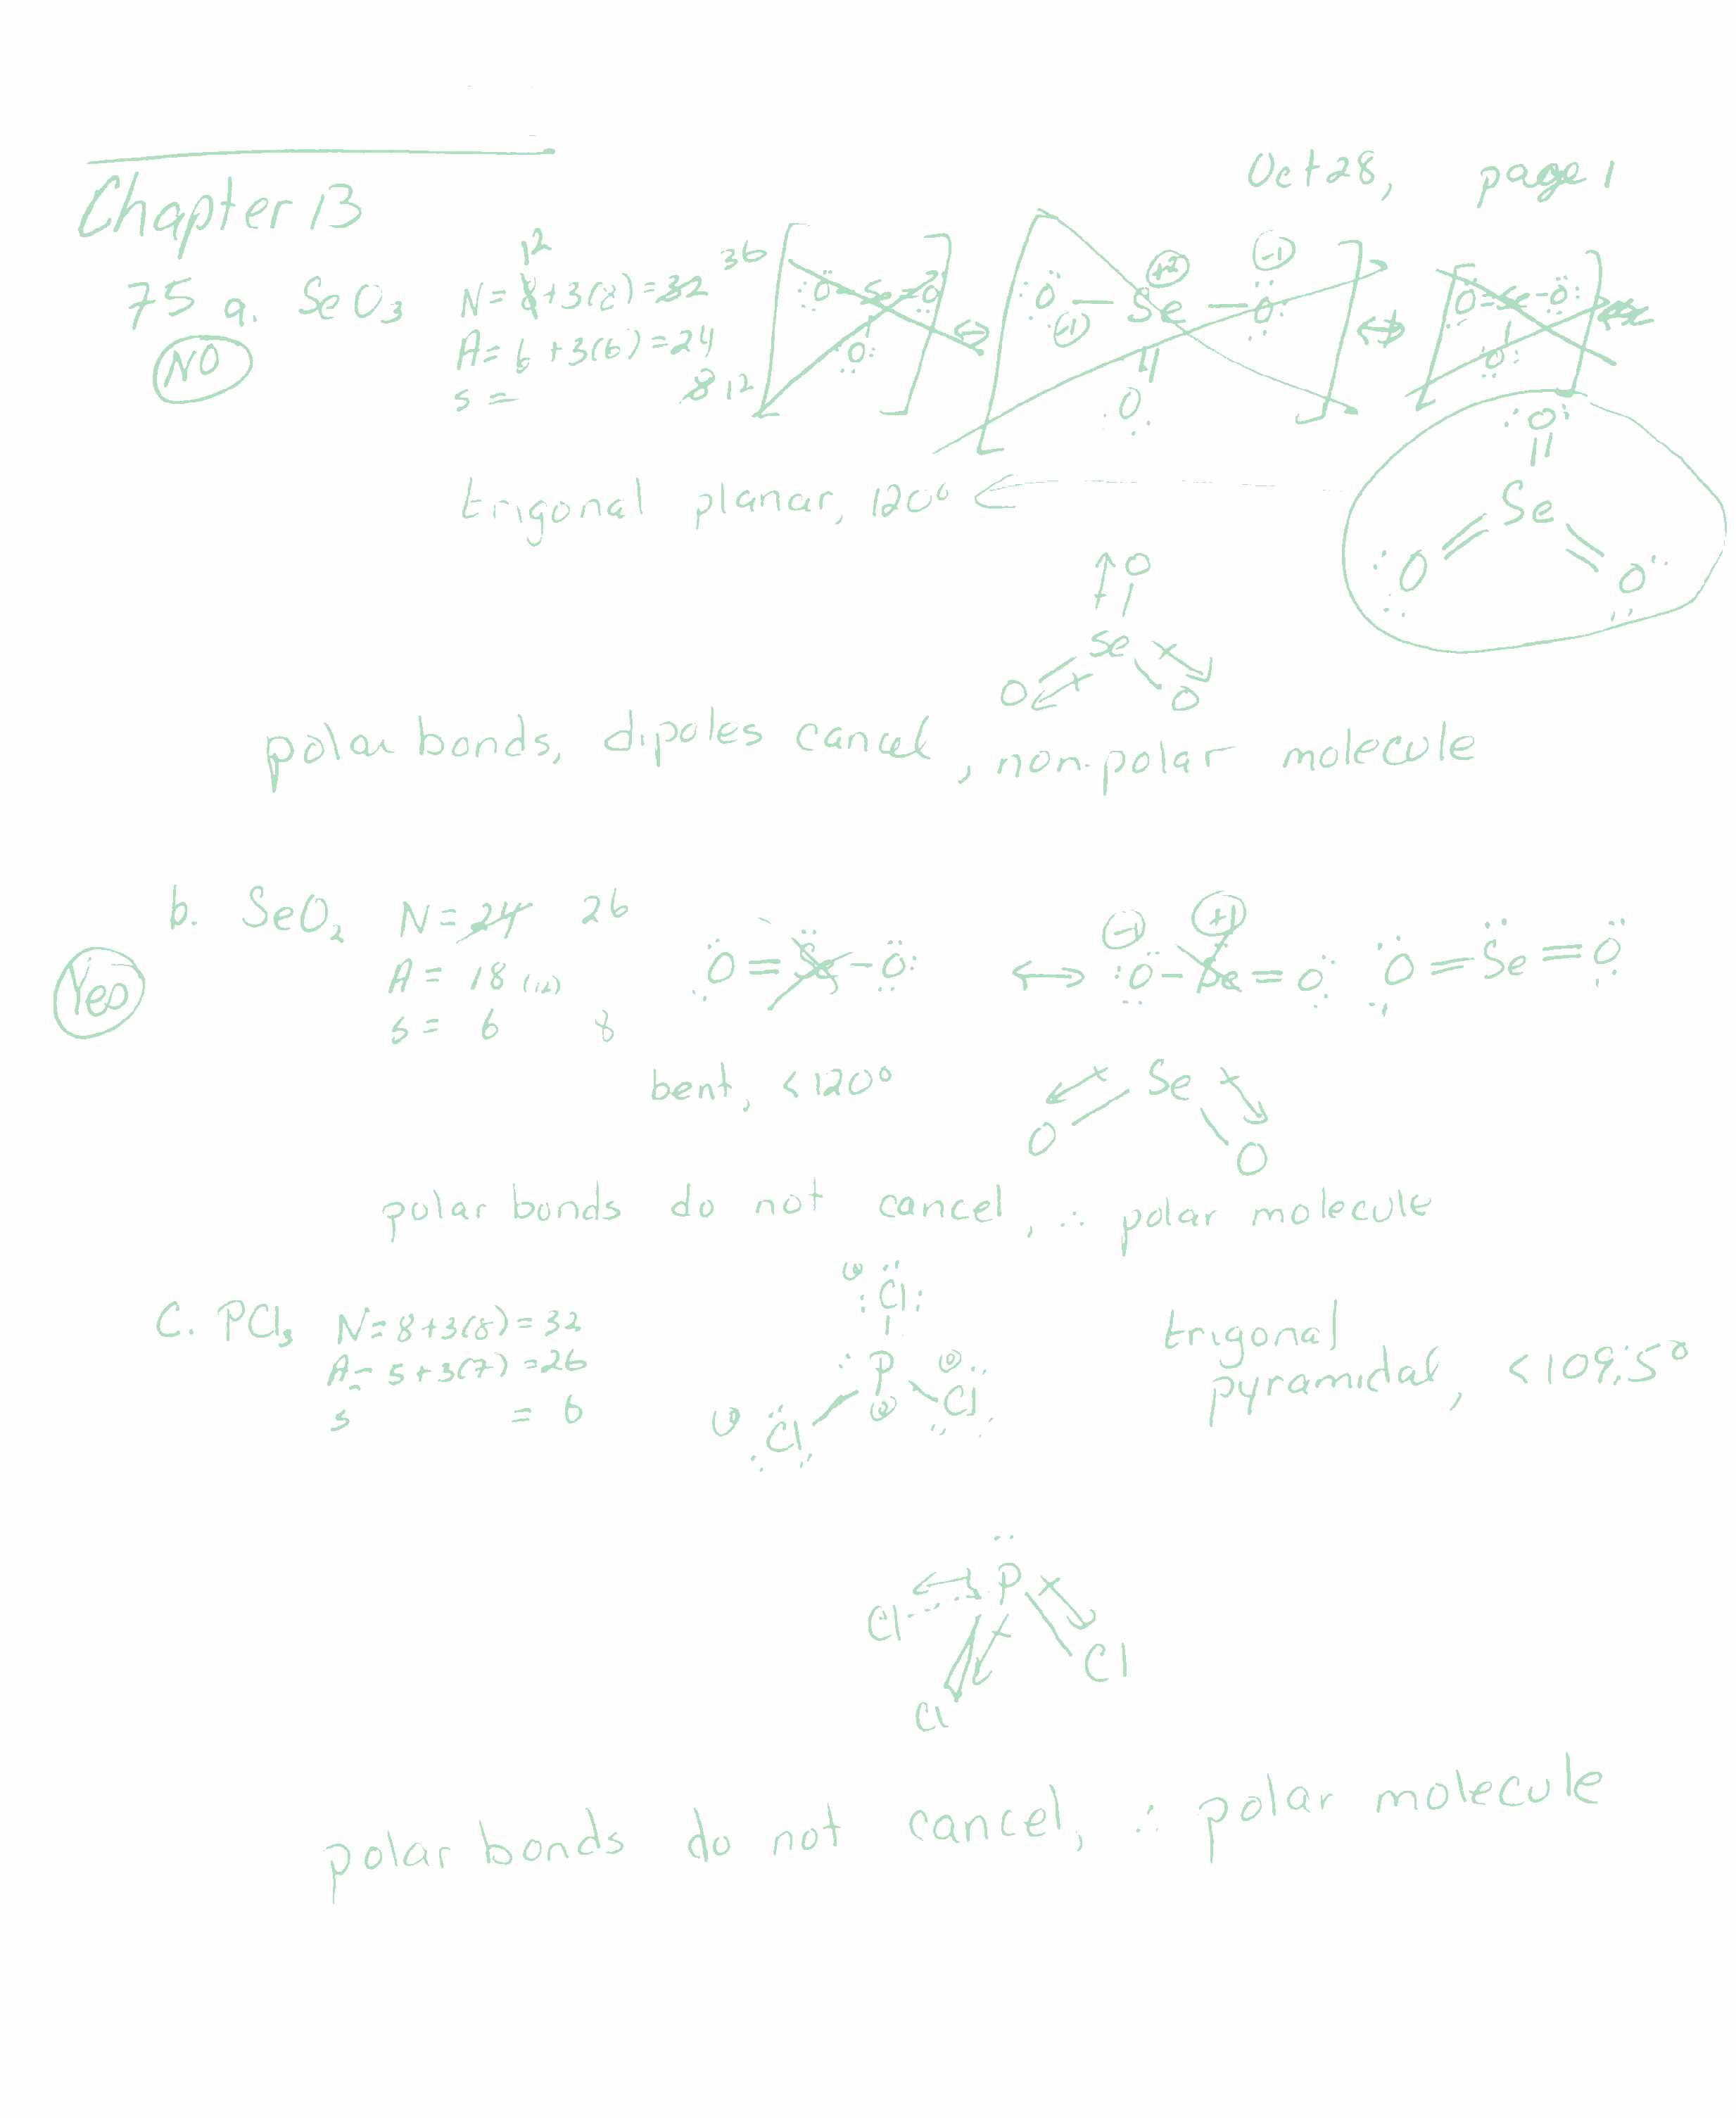 Oct 28, page 1
Chapter 13
75 a. SeO3 N = 8+3(8) = 32 12 36
A = 6+3(6) = 24
s = 8 12
NO
:O=Se=O: ↔ :O—Se—O: +2 -1 (-1) ↔ O=Se—O:
trigonal planar, 120°
O
Se
O O
O
Se
O O
polar bonds, dipoles cancel, non-polar molecule
b. SeO2 N = 24 26
A = 18 (12)
s = 6 8
Yes
O=Se—O: ↔ :O—Se=O -1 +1 O=Se=O
bent, <120°
Se
O O
polar bonds do not cancel, ∴ polar molecule
C. PCl3 N = 8+3(8) = 32
A = 5+3(7) = 26
s = 6
:Cl:
P
Cl Cl
trigonal
pyramidal, <109.5°
P
Cl
Cl
Cl
polar bonds do not cancel, ∴ polar molecule